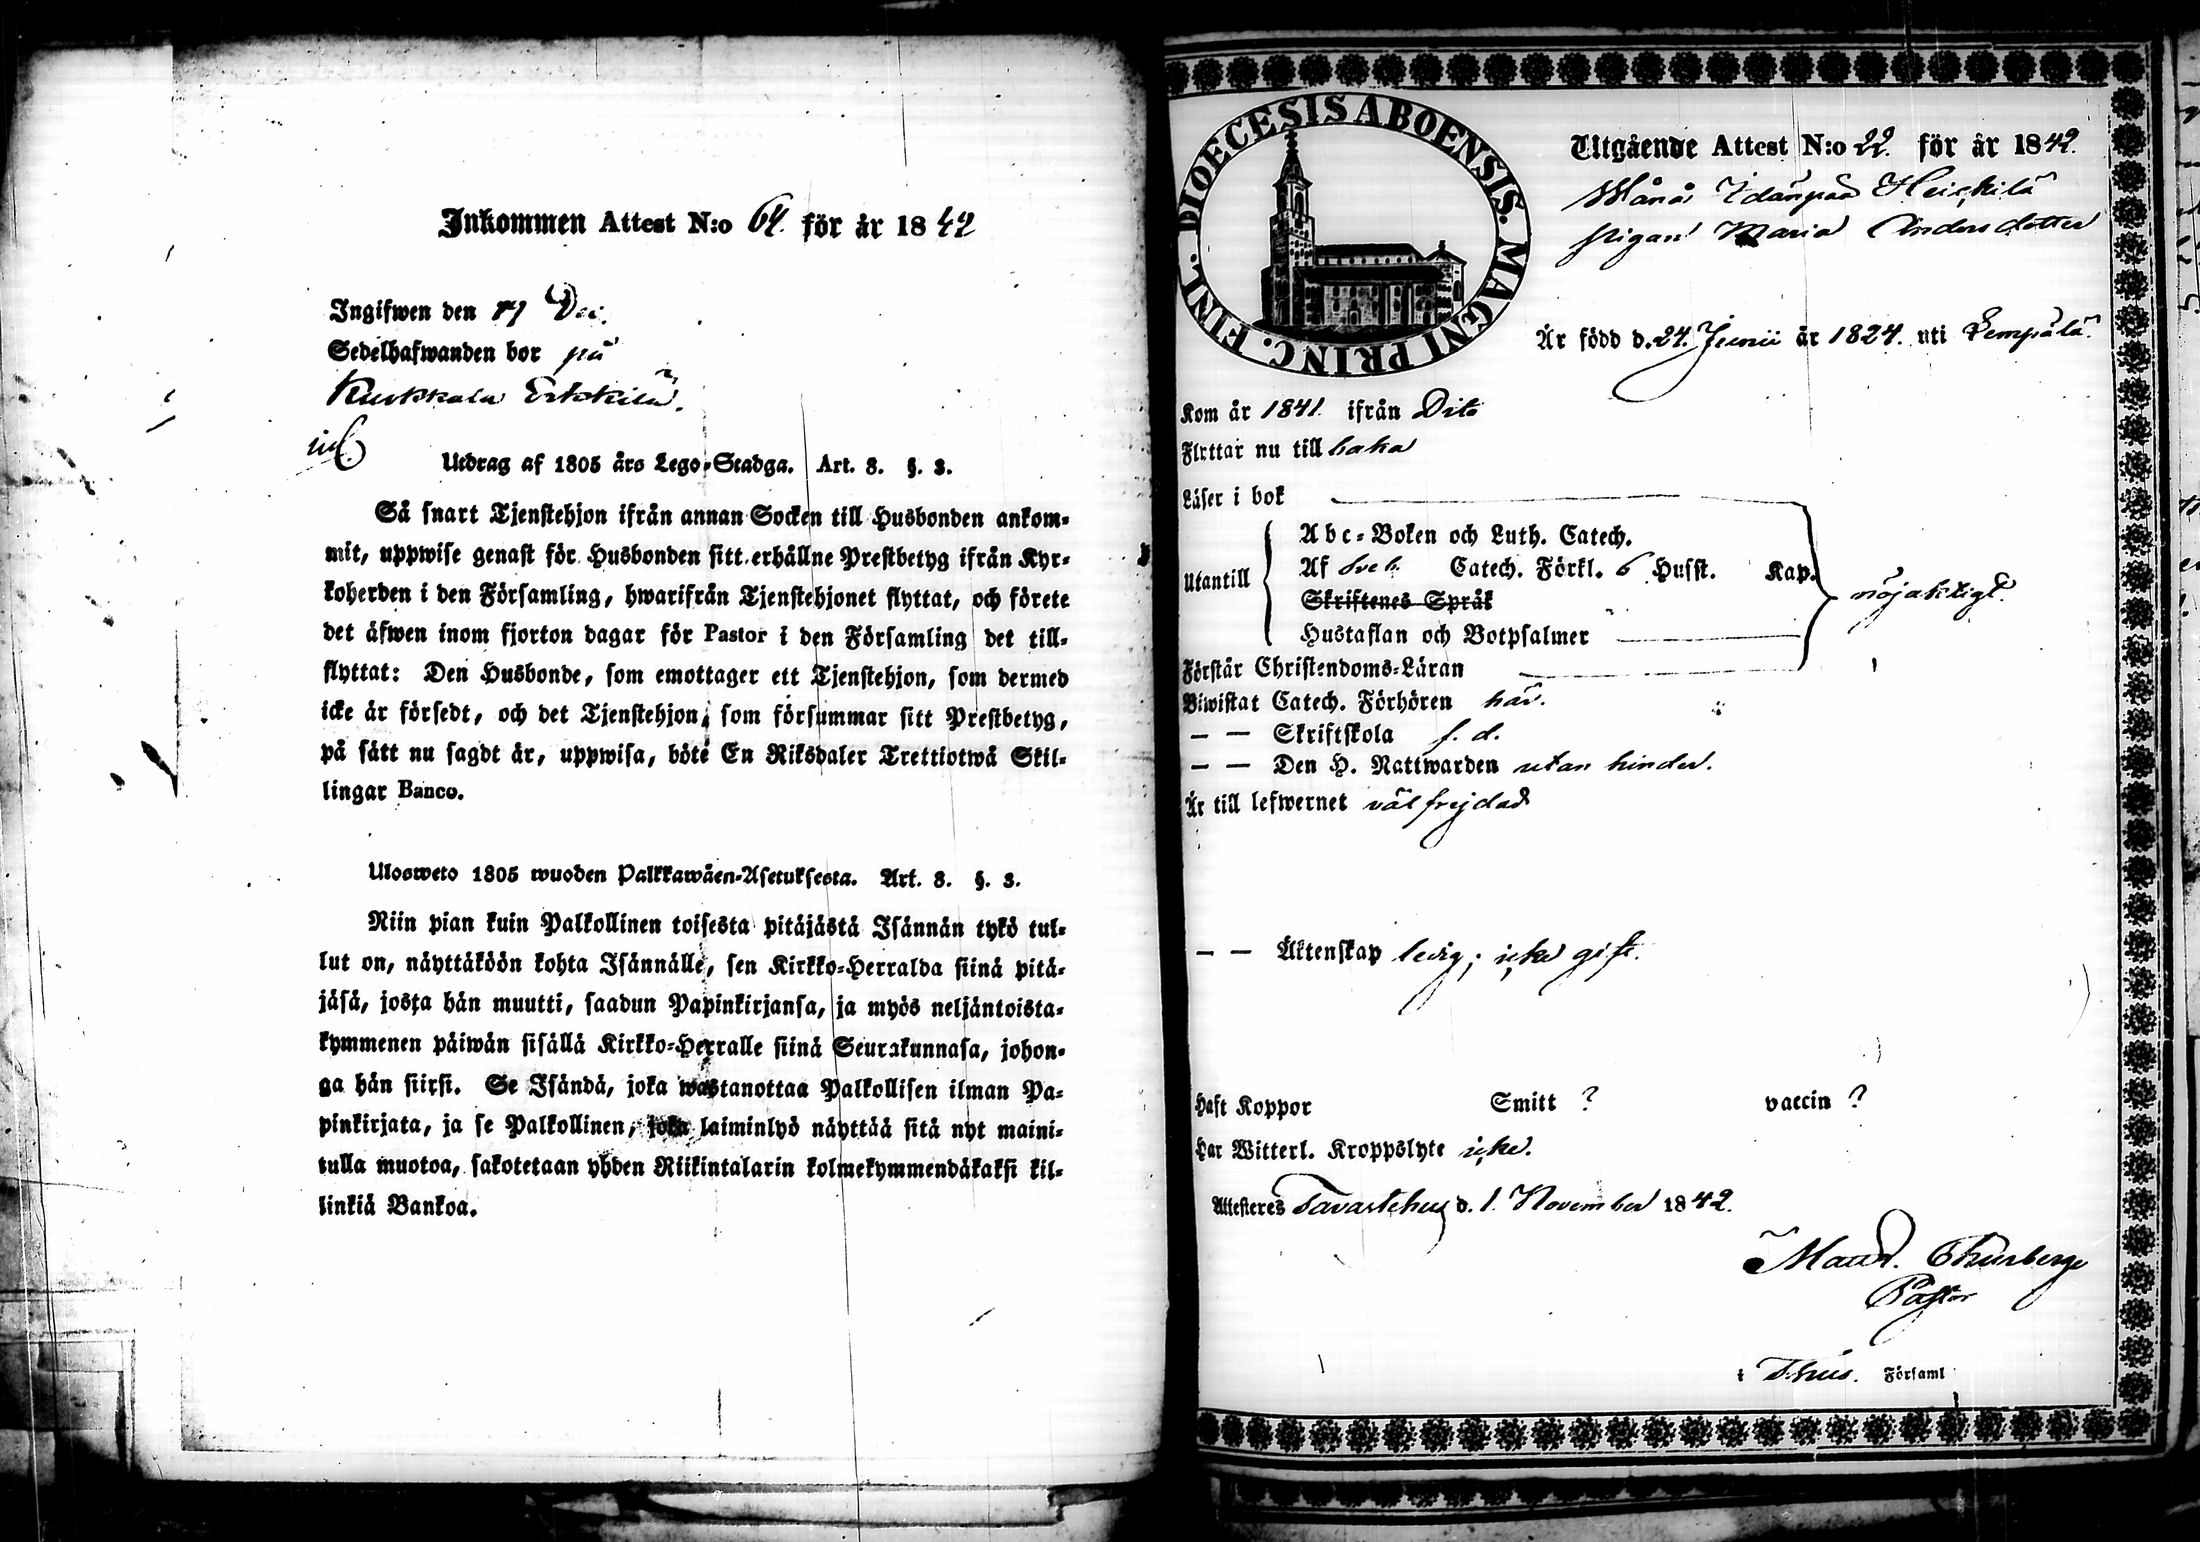 Inkommen Attest N:o 64. för år 1842
Ingifwen den 17 Dec.
Sedelhafwanden bor på
Kurkkala Erkkilä.
Utdrag af 1805 års Lego-Stadga. Art. 8. §. 3.
Så snart Tjenstehjon ifrån annan Socken till Husbonden ankom-
mit, uppwise genast för Husbonden sitt erhållne Prestbetyg ifrån Kyr-
koherden i den Församling, hwarifrån Tjenstehjonet flyttat, och förete
det äfwen inom fjorton dagar för Pastor i den Församling det till-
flyttat: Den Husbonde, som emottager ett Tjenstehjon, som dermed
icke är försedt, och det Tjenstehjon, som försummar sitt Prestbetyg,
på sätt nu sagdt är, uppwisa, böte En Riksdaler Trettiotwå Skil-
lingar Banco.
Ulosweto 1805 wuoden Palkkawäen-Asetuksesta. Art. 8. §. 3.
Niin pian kuin Palkollinen toisesta pitäjästä Isännän tykö tul-
lut on, näyttäköön kohta Isännälle, sen Kirkko-Herralda siinä pitä-
jäsä, josta hän muutti, saadun Papinkirjansa, ja myös neljäntoista-
kymmenen päiwän sisällä Kirkko-Herralle siinä Seurakunnasa, johon-
ga hän siirsi. Se Isändä, joka wastanottaa Palkollisen ilman Pa-
pinkirjata, ja se Palkollinen, joka laiminlyö näyttää sitä nyt maini-
tulla muotoa, sakotetaan yhden Riikintalarin kolmekymmendäkaksi kil-
linkiä Bankoa.
DIOECESIS ABOENSIS. MAGNI PRINC. FINL.
Utgående Attest N:o 22. för år 1842.
Idänpää Heickilä
pigan Maria Andersdotter
Är född d. 24. Junii år 1824. uti Lempälä.
Kom år 1841. ifrån Dito
Flyttar nu till baka
Läser i bok
Abc-Boken och Luth. Catech.
Utantill Af Sveb. Catech. Förkl. 6 Husst. Kap. nöjaktigt.
Skriftenes Språk
Hustaflan och Botpsalmer
Förstår Christendoms-Läran
Biwistat Catech. Förhören här.
— — Skriftskola f. d.
— — Den H. Nattwarden utan hinder.
Är till lefwernet välfrejdad
— — Äktenskap ledig; icke gift.
Haft Koppor Smitt ? vaccin ?
Har Witterl. Kroppslyte icke.
Attesteres Tavastehus d. 1. November 1842.
Maur. Thunberg
Pastor
i Thus. Församl